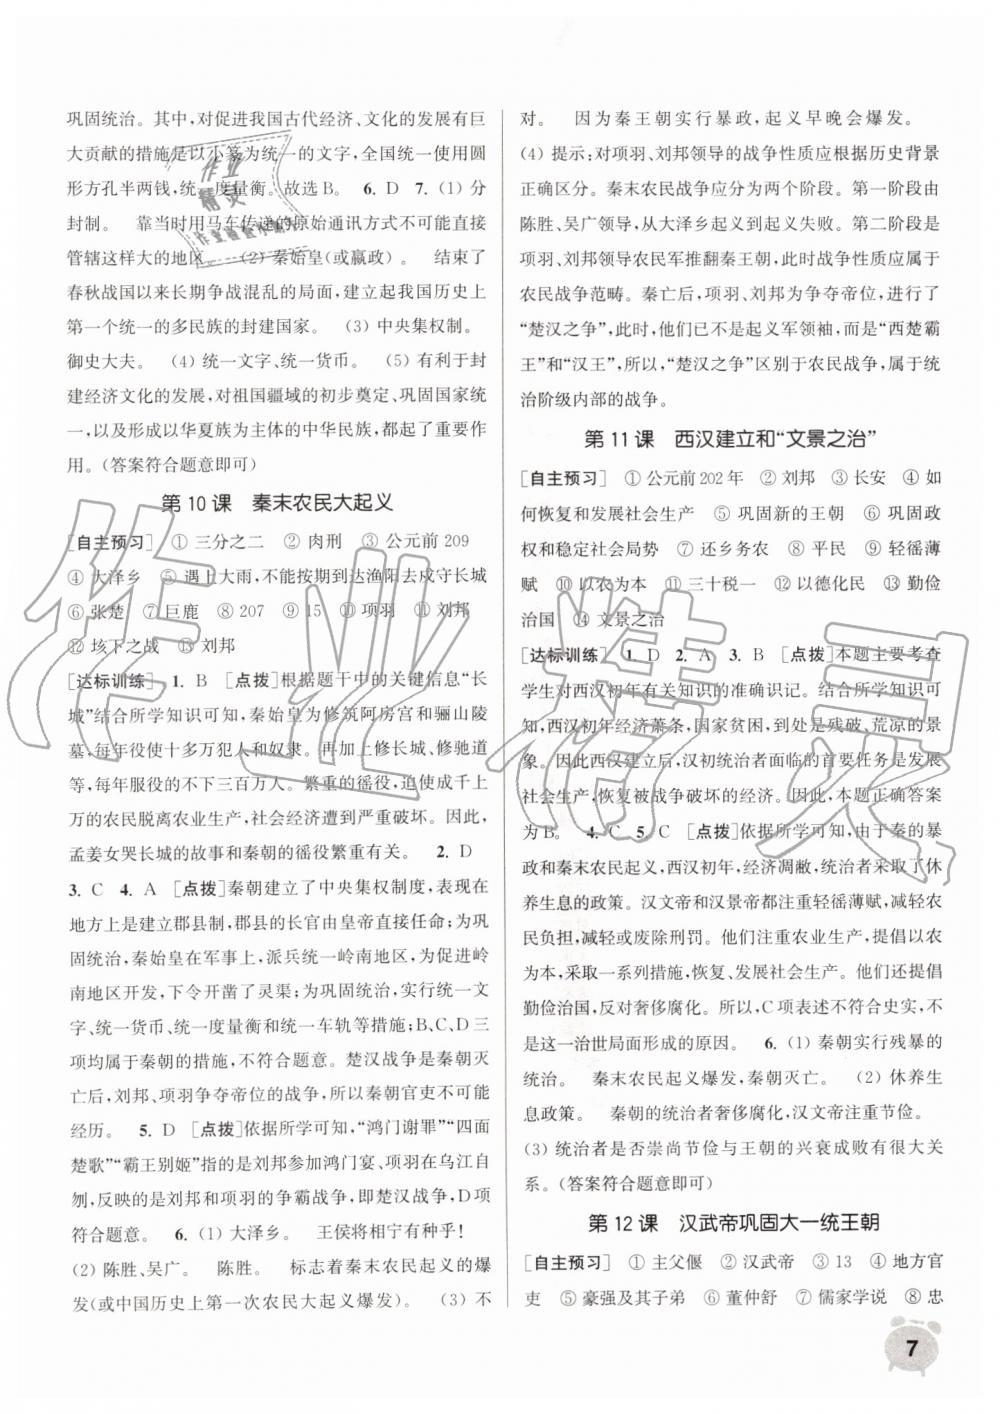 巩固统治。其中,对促进我国古代经济、文化的发展有巨
大贡献的措施是以小篆为统一的文字,全国统一使用圆
形方孔半两钱,统一度量衡。故选B。 6. D 7. (1) 分
封制。 靠当时用马车传递的原始通讯方式不可能直接
管辖这样大的地区。 (2) 秦始皇(或嬴政)。 结束了
春秋战国以来长期争战混乱的局面,建立起我国历史上
第一个统一的多民族的封建国家。 (3) 中央集权制。
御史大夫。 (4) 统一文字、统一货币。 (5) 有利于封
建经济文化的发展,对祖国疆域的初步奠定、巩固国家统
一,以及形成以华夏族为主体的中华民族,都起了重要作
用。(答案符合题意即可)
第 10 课 秦末农民大起义
[自主预习] ① 三分之二 ② 肉刑 ③ 公元前 209
④ 大泽乡 ⑤ 遇上大雨,不能按期到达渔阳去戍守长城
⑥ 张楚 ⑦ 巨鹿 ⑧ 207 ⑨ 15 ⑩ 项羽 ⑪ 刘邦
⑫ 垓下之战 ⑬ 刘邦
[达标训练] 1. B [点拨]根据题干中的关键信息“长
城”结合所学知识可知,秦始皇为修筑阿房宫和骊山陵
墓,每年役使十多万犯人和奴隶。再加上修长城、修驰道
等,每年服役的不下三百万人。繁重的徭役,使成千上
万的农民脱离农业生产,社会经济遭到严重破坏。因此,
孟姜女哭长城的故事和秦朝的徭役繁重有关。 2. D
3. C 4. A [点拨]秦朝建立了中央集权制度,表现在
地方上是建立郡县制,郡县的长官由皇帝直接任命;为巩
固统治,秦始皇在军事上,派兵统一岭南地区,为适应岭
南地区开发,下令开凿了灵渠;为巩固统治,实行统一文
字、统一货币、统一度量衡和统一车轨等措施;B、C、D三
项均属于秦朝的措施,不符合题意。楚汉战争是秦朝灭
亡后,刘邦、项羽争夺帝位的战争,所以秦朝官吏不可能
经历。 5. D [点拨]依据所学可知,“鸿门谢罪”“四面
楚歌”“霸王别姬”指的是刘邦赴鸿门宴、项羽在乌江自
刎,反映的是刘邦和项羽的争霸战争,即楚汉战争,D项
符合题意。 6. (1) 大泽乡。 王侯将相宁有种乎!
(2) 陈胜、吴广。 陈胜。 标志着秦末农民起义的爆
发(或中国历史上第一次农民大起义爆发)。 (3) 不
对。 因为秦王朝实行暴政,起义早晚会爆发。
(4) 提示:对项羽、刘邦领导的战争性质应根据历史背景
正确区分。秦末农民战争应分为两个阶段。第一阶段由
陈胜、吴广领导,从大泽乡起义到起义失败。第二阶段是
项羽、刘邦领导农民军推翻秦王朝,此时战争性质应属于
农民战争范畴。秦亡后,项羽、刘邦为争夺帝位,进行了
“楚汉之争”,此时,他们已不是起义军领袖,而是“西楚霸
王”和“汉王”。所以,“楚汉之争”区别于农民战争,属于统
治阶级内部的战争。
第 11 课 西汉建立和“文景之治”
[自主预习] ① 公元前 202 年 ② 刘邦 ③ 长安 ④ 如
何恢复和发展社会生产 ⑤ 巩固新的王朝 ⑥ 巩固政
权和稳定社会局势 ⑦ 还乡务农 ⑧ 平民 ⑨ 轻徭薄
赋 ⑩ 以农为本 ⑪ 三十税一 ⑫ 以德化民 ⑬ 勤俭
治国 ⑭ 文景之治
[达标训练] 1. D 2. A 3. B [点拨]本题主要考查
学生对西汉初年有关知识的准确识记。结合所学知识可
知,西汉初年经济萧条,国家贫困,到处是残破、荒凉的景
象。因此西汉建立后,汉初统治者面临的首要任务是发展
社会生产,恢复被战争破坏的经济。因此,本题正确答案
为B。 4. C 5. C [点拨]依据所学可知,由于秦的暴
政和秦末农民起义,西汉初年,经济凋敝,统治者采取了休
养生息的政策。汉文帝和汉景帝都注重轻徭薄赋,减轻农
民负担,减轻或废除刑罚。他们注重农业生产,提倡以农
为本,采取一系列措施,恢复、发展社会生产。他们还提倡
勤俭治国,反对奢侈腐化。所以,C项表述不符合史实,不
是这一治世局面形成的原因。 6. (1) 秦朝实行残暴的
统治。 秦末农民起义爆发,秦朝灭亡。 (2) 休养生
息政策。 秦朝的统治者奢侈腐化,汉文帝注重节俭。
(3) 统治者是否崇尚节俭与王朝的兴衰成败有很大关
系。(答案符合题意即可)
第 12 课 汉武帝巩固大一统王朝
[自主预习] ① 主父偃 ② 汉武帝 ③ 13 ④ 地方官
吏 ⑤ 豪强及其子弟 ⑥ 董仲舒 ⑦ 儒家学说 ⑧ 忠
7
作业精灵
作业
精灵